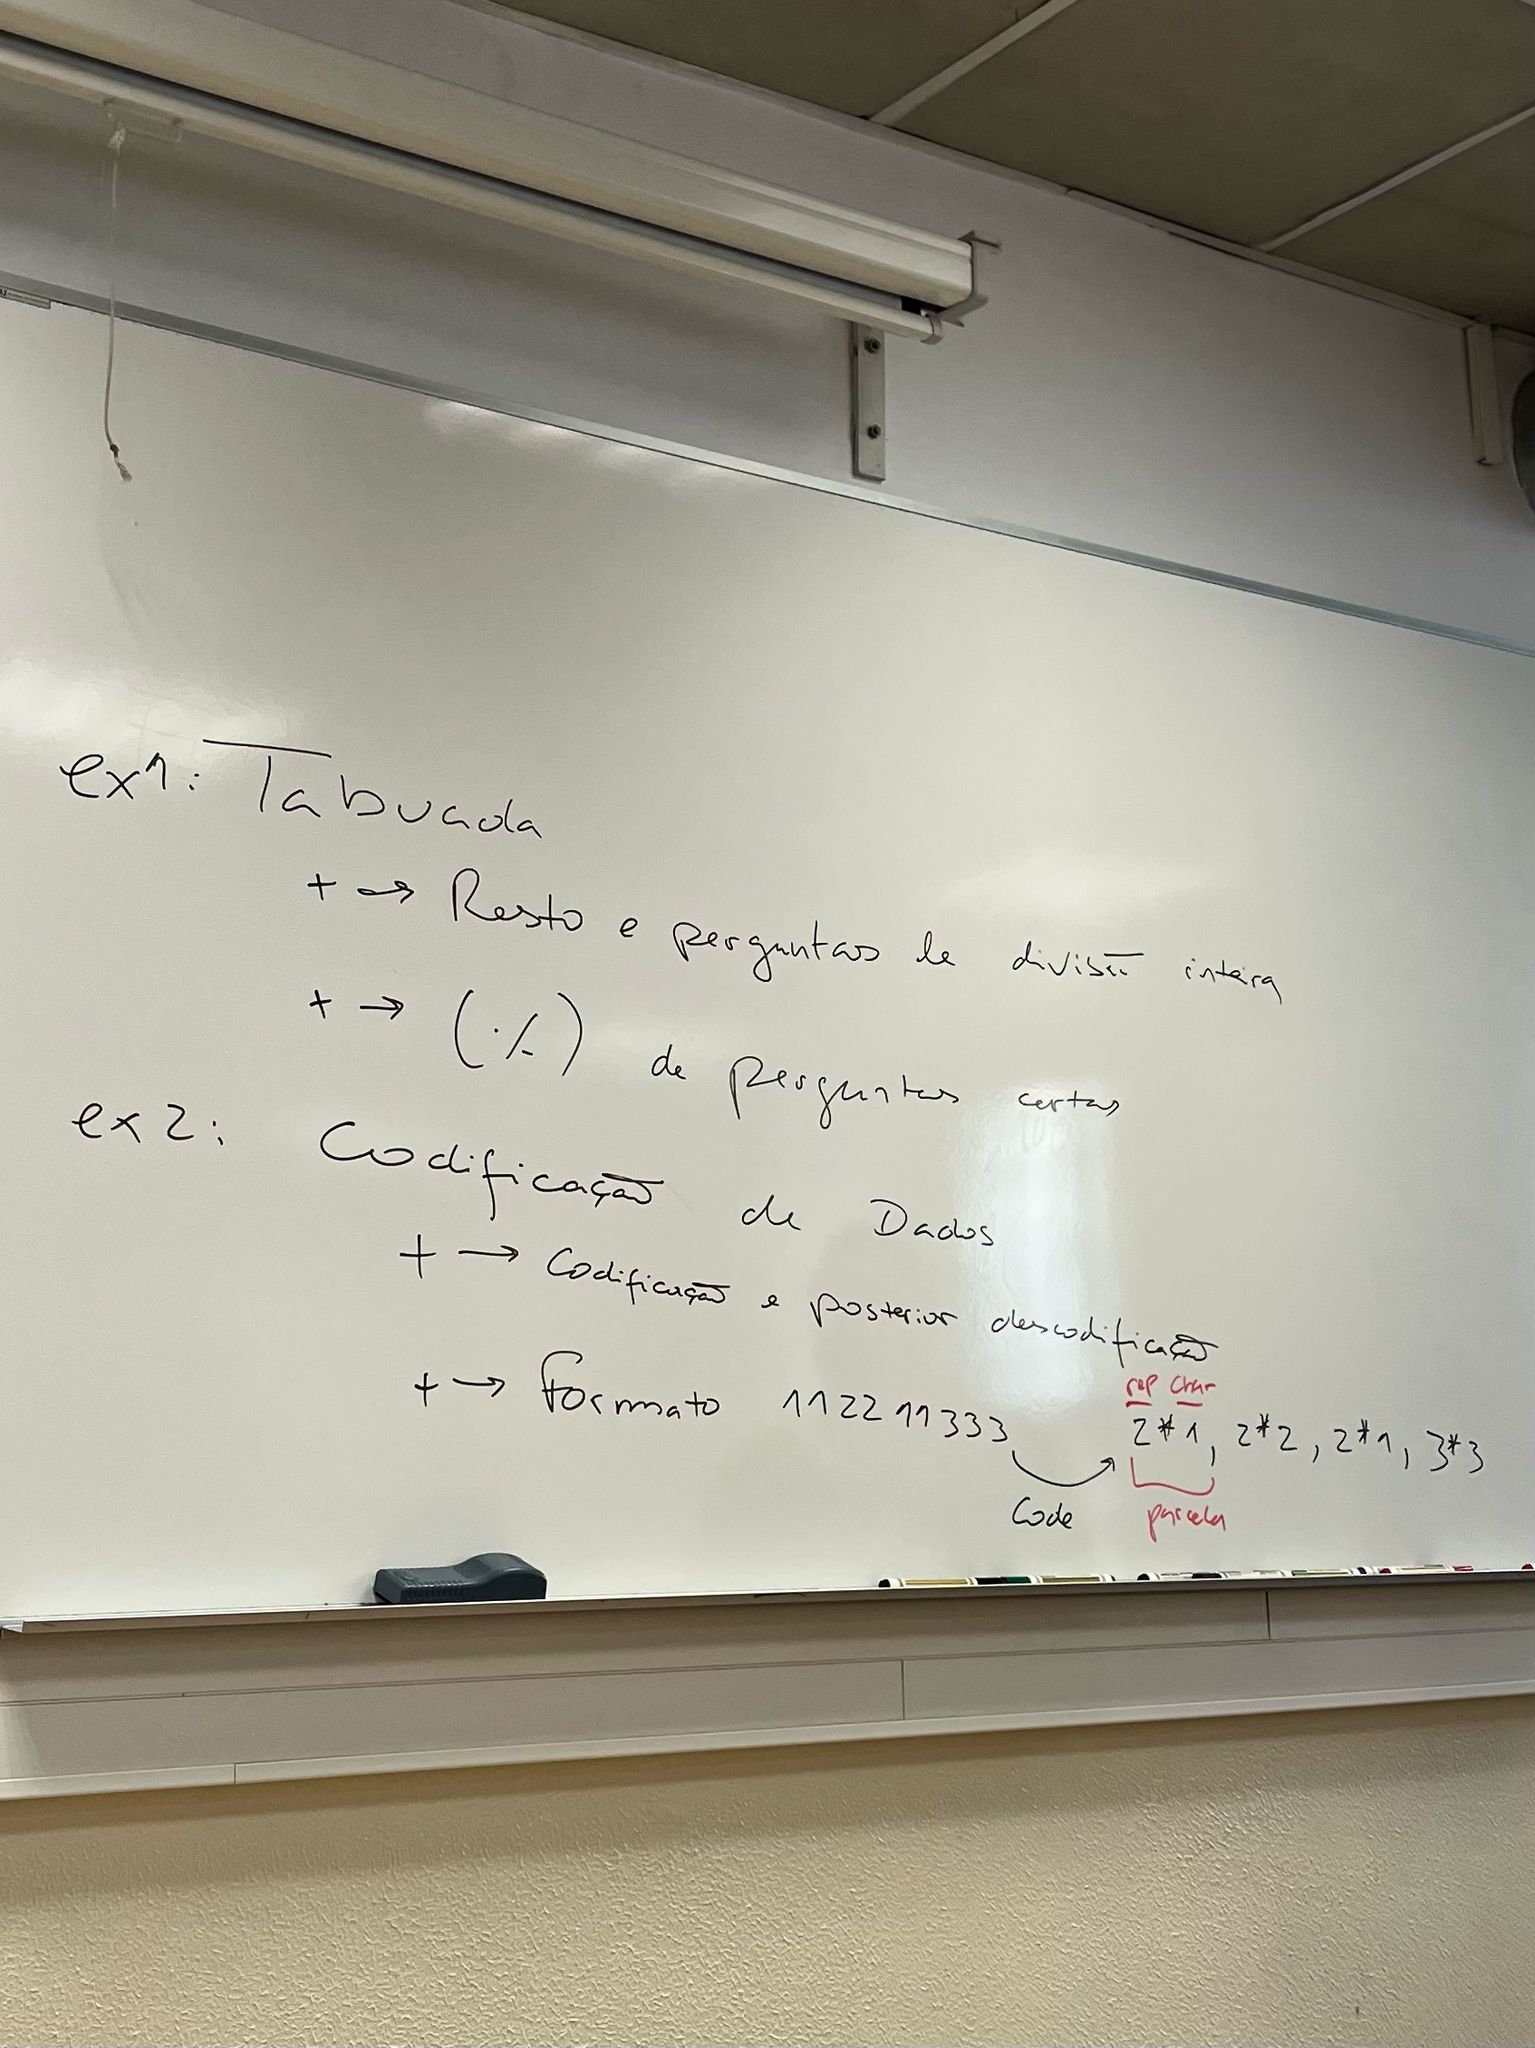 ex1: Tabuada
+ → Resto e perguntas de divisão inteira
+ → (%) de perguntas certas
ex2: Codificação de Dados
+ → Codificação e posterior descodificação
rep char
+ → Formato 112211333 2*1, 2*2, 2*1, 3*3
Code parcela